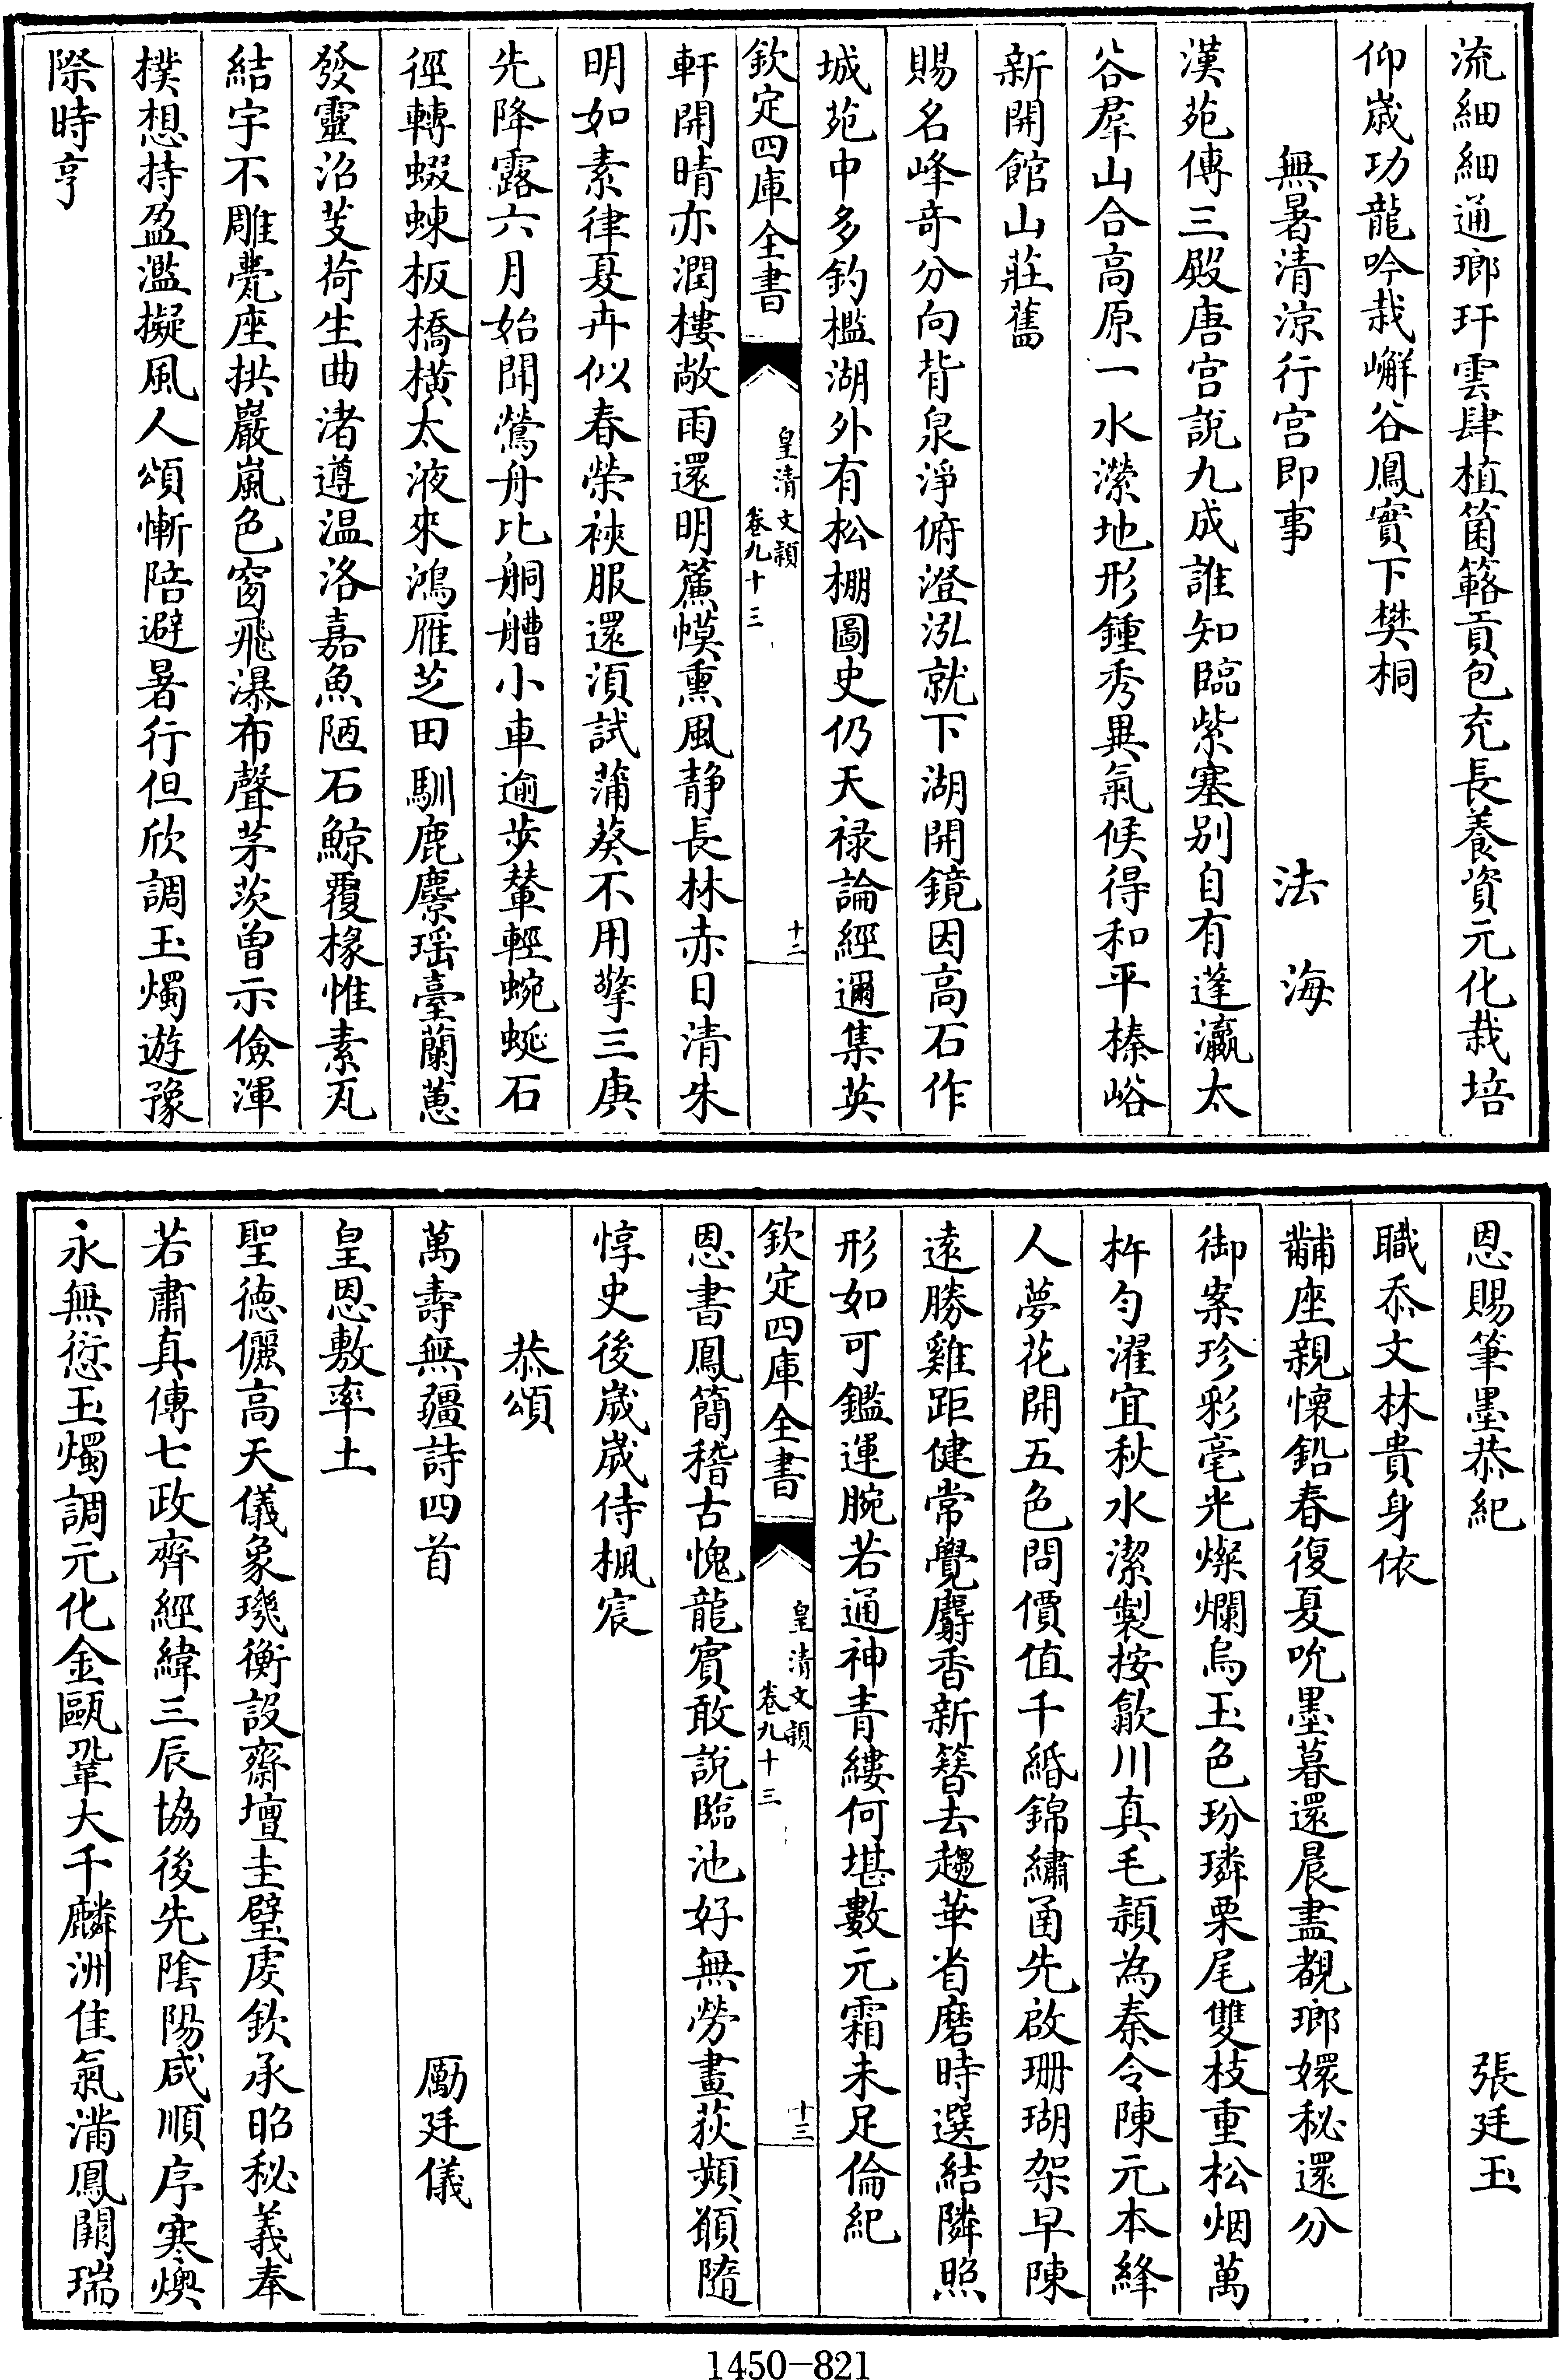 流細細通瑯玕雲肆植箘簵貢包充長養資元化栽培
仰歲功龍吟栽嶰谷鳳實下樊桐
無暑清涼行宫即事　法海
漢苑傳三殿唐宫說九成誰知臨紫塞别自有蓬瀛太
谷羣山合高原一水瀠地形鍾秀異氣候得和平榛峪
新開館山莊舊
賜名峰竒分向背泉淨俯澄泓就下湖開鏡因高石作
城苑中多釣檻湖外有松棚圖史仍天禄論經邇集英
欽定四庫全書　皇清文穎　卷九十三　十二
軒開晴亦潤樓敞雨還明簾幙熏風静長林赤日清朱
明如素律夏卉似春榮裌服還湏試蒲葵不用擎三庚
先降露六月始聞鶯舟比舸艚小車逾步輦輕蜿蜒石
徑轉蝃蝀板橋横太液來鴻雁芝田馴鹿麖瑶臺蘭蕙
發靈沼芰荷生曲渚遵温洛嘉魚陋石鯨覆椽惟素瓦
結宇不雕甍座拱巖嵐色窗飛瀑布聲茅茨曽示儉渾
樸想持盈濫擬風人頌慚陪避暑行但欣調玉燭遊豫
際時亨
恩賜筆墨恭紀　張廷玉
職忝文林貴身依
黼座親懷鉛春復夏吮墨暮還晨盡覩瑯嬛秘還分
御案珍彩毫光燦爛烏玉色玢璘栗尾雙枝重松烟萬
杵勻濯宜秋水潔製按歙川真毛頴為秦令陳元本絳
人夢花開五色問價值千緡錦繡函先啟珊瑚架早陳
遠勝雞距健常覺麝香新簪去趨華省磨時選結隣照
形如可鑑運腕若通神青縷何堪數元霜未足倫紀
欽定四庫全書　皇清文穎　卷九十三　十三
恩書鳳簡稽古愧龍賓敢說臨池好無勞畫荻頻願隨
惇史後歲歲侍楓宸
恭頌
萬壽無疆詩四首　勵廷儀
皇恩敷率土
聖徳儷高天儀象璣衡設齋壇圭璧虔欽承昭秘義奉
若肅真傳七政齊經緯三辰協後先陰陽咸順序寒燠
永無愆玉燭調元化金甌鞏大千麟洲佳氣滿鳳闕瑞
1450-821